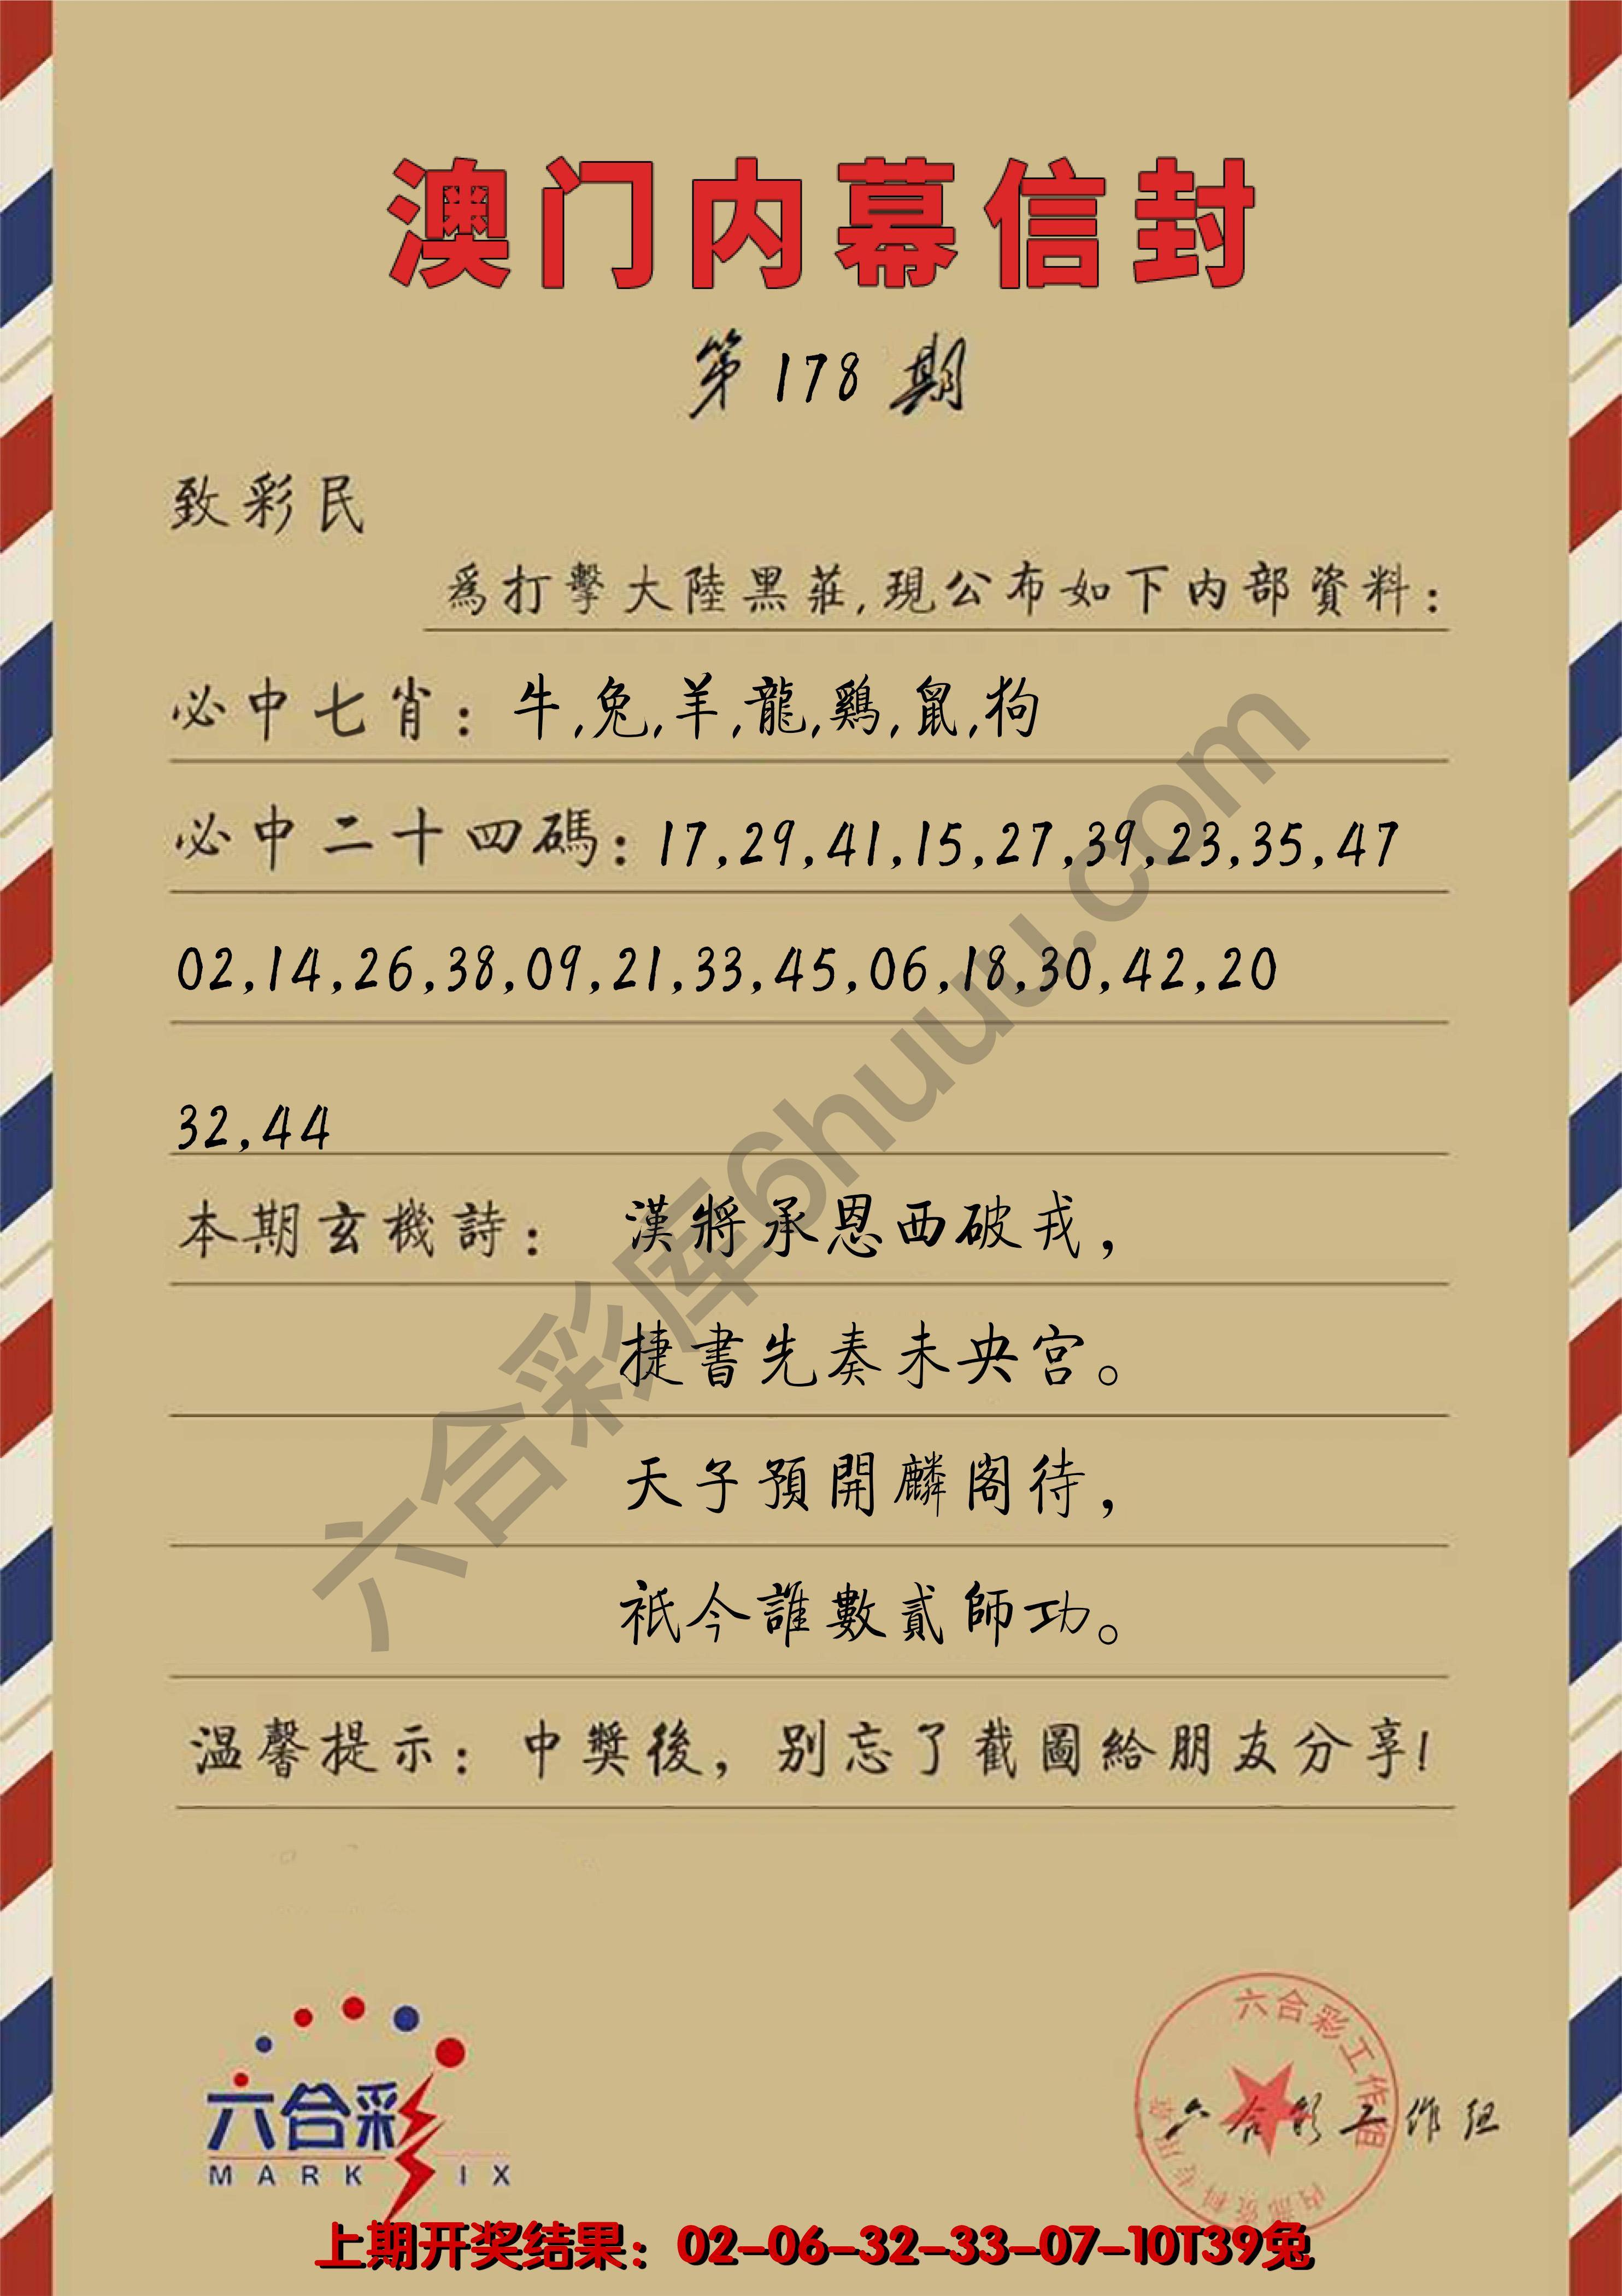 澳门内幕信封
第178期
致彩民
爲打擊大陸黑莊,現公布如下内部資料:
必中七肖: 牛,兔,羊,龍,鷄,鼠,狗
必中二十四碼: 17,29,41,15,27,39,23,35,47
02,14,26,38,09,21,33,45,06,18,30,42,20
32,44
本期玄機詩: 漢將承恩西破戎，
捷書先奏未央宫。
天子預開麟閣待，
祇今誰數貳師功。
温馨提示: 中獎後，别忘了截圖給朋友分享!
六合彩库6huuu.com
六合彩
MARK IX
六合彩工作组
内部资料专用章
六合彩工作组
上期开奖结果：02-06-32-33-07-10T39兔